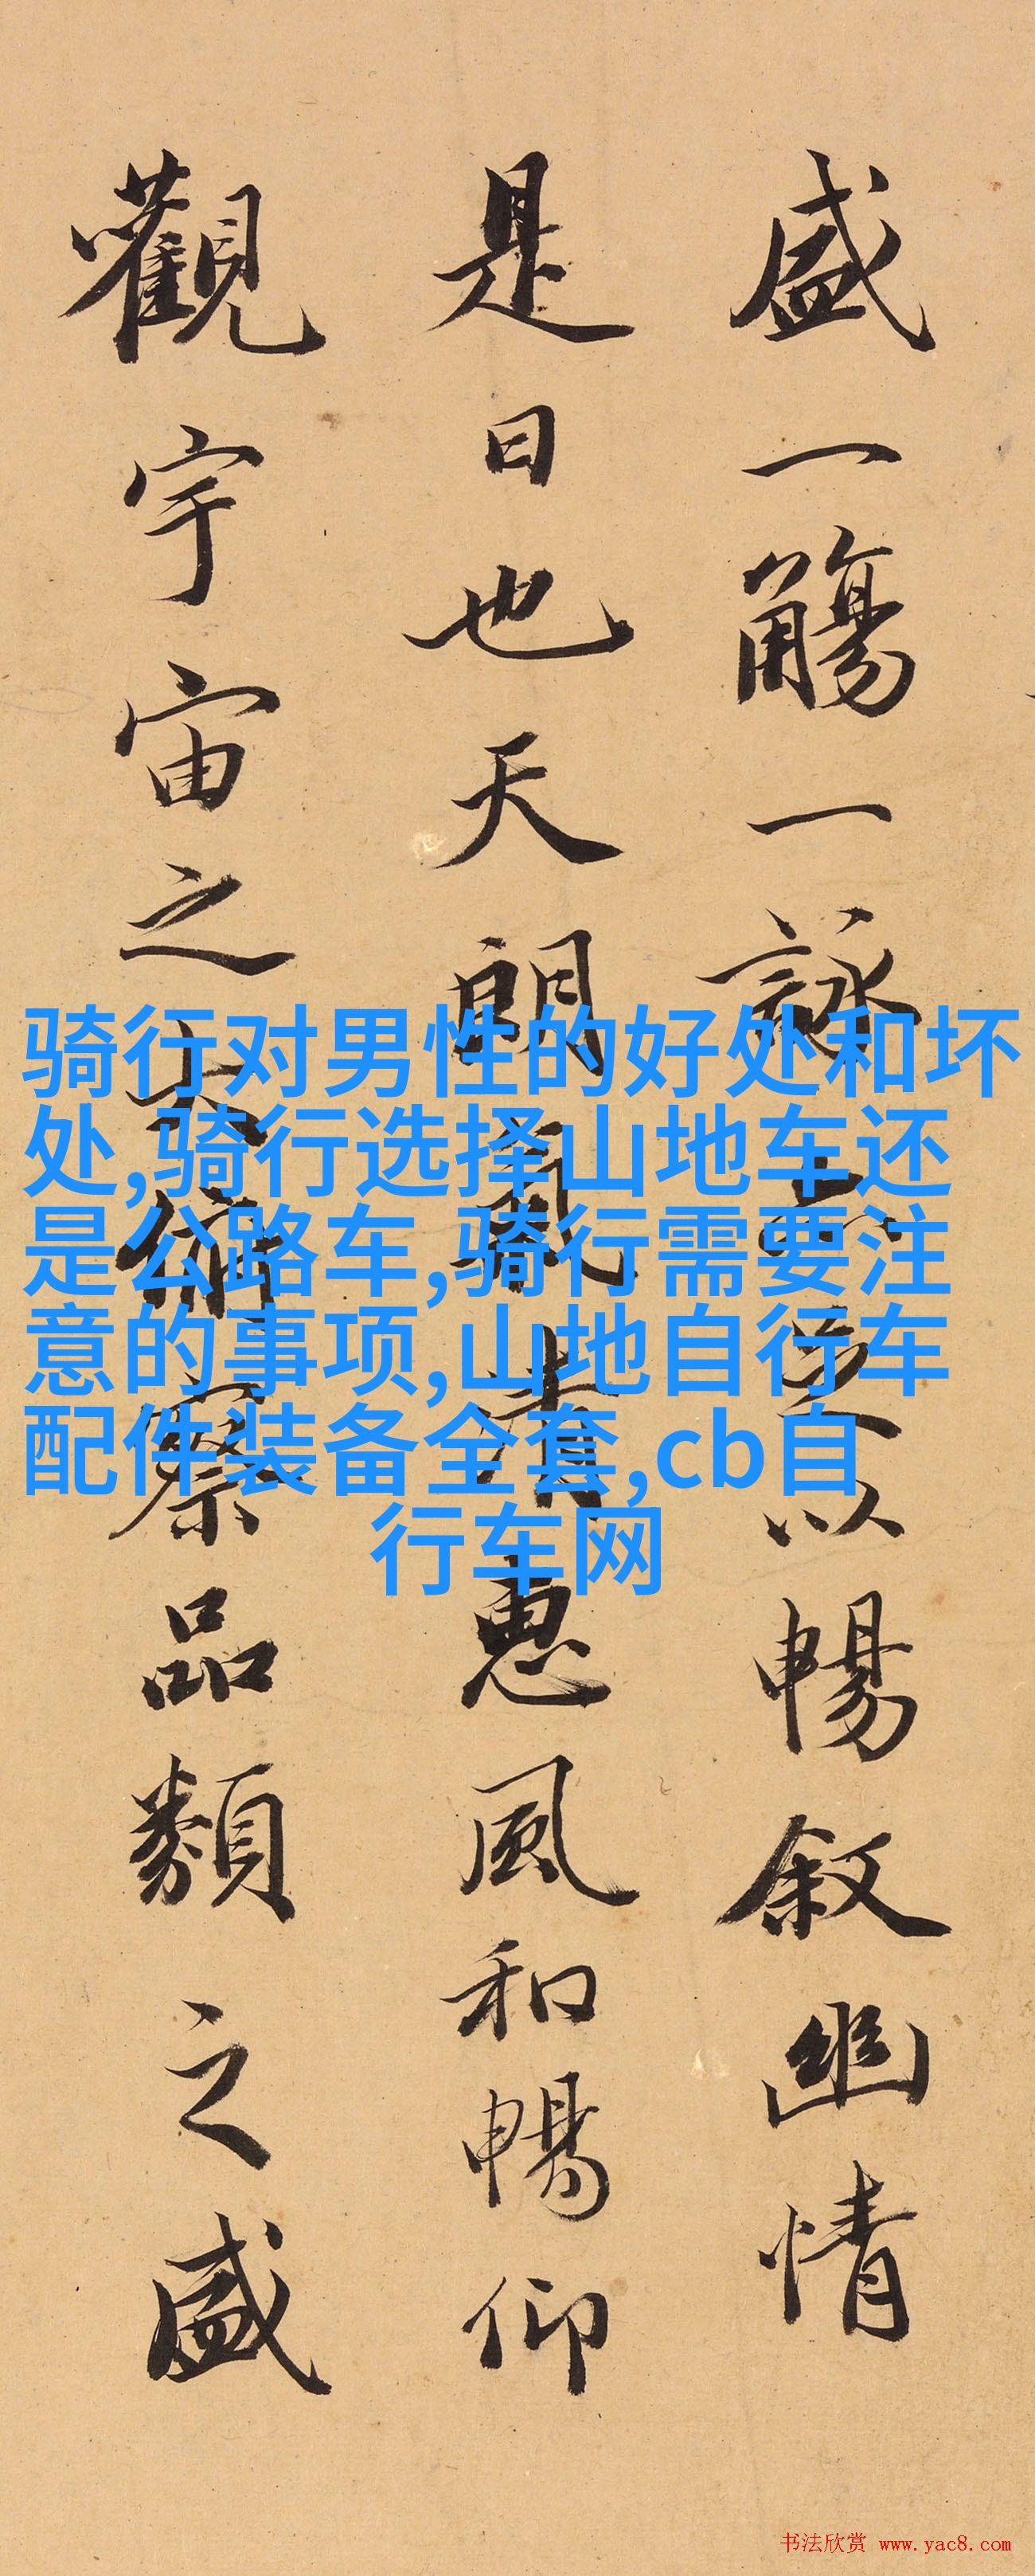 盛一觴一詠亦足以暢叙幽情
是日也天朗氣清惠風和暢仰
觀宇宙之大俯察品類之盛
骑行对男性的好处和坏
处,骑行选择山地车还
是公路车,骑行需要注
意的事项,山地自行车
配件装备全套,cb自
行车网
书法欣赏 www.yac8.com